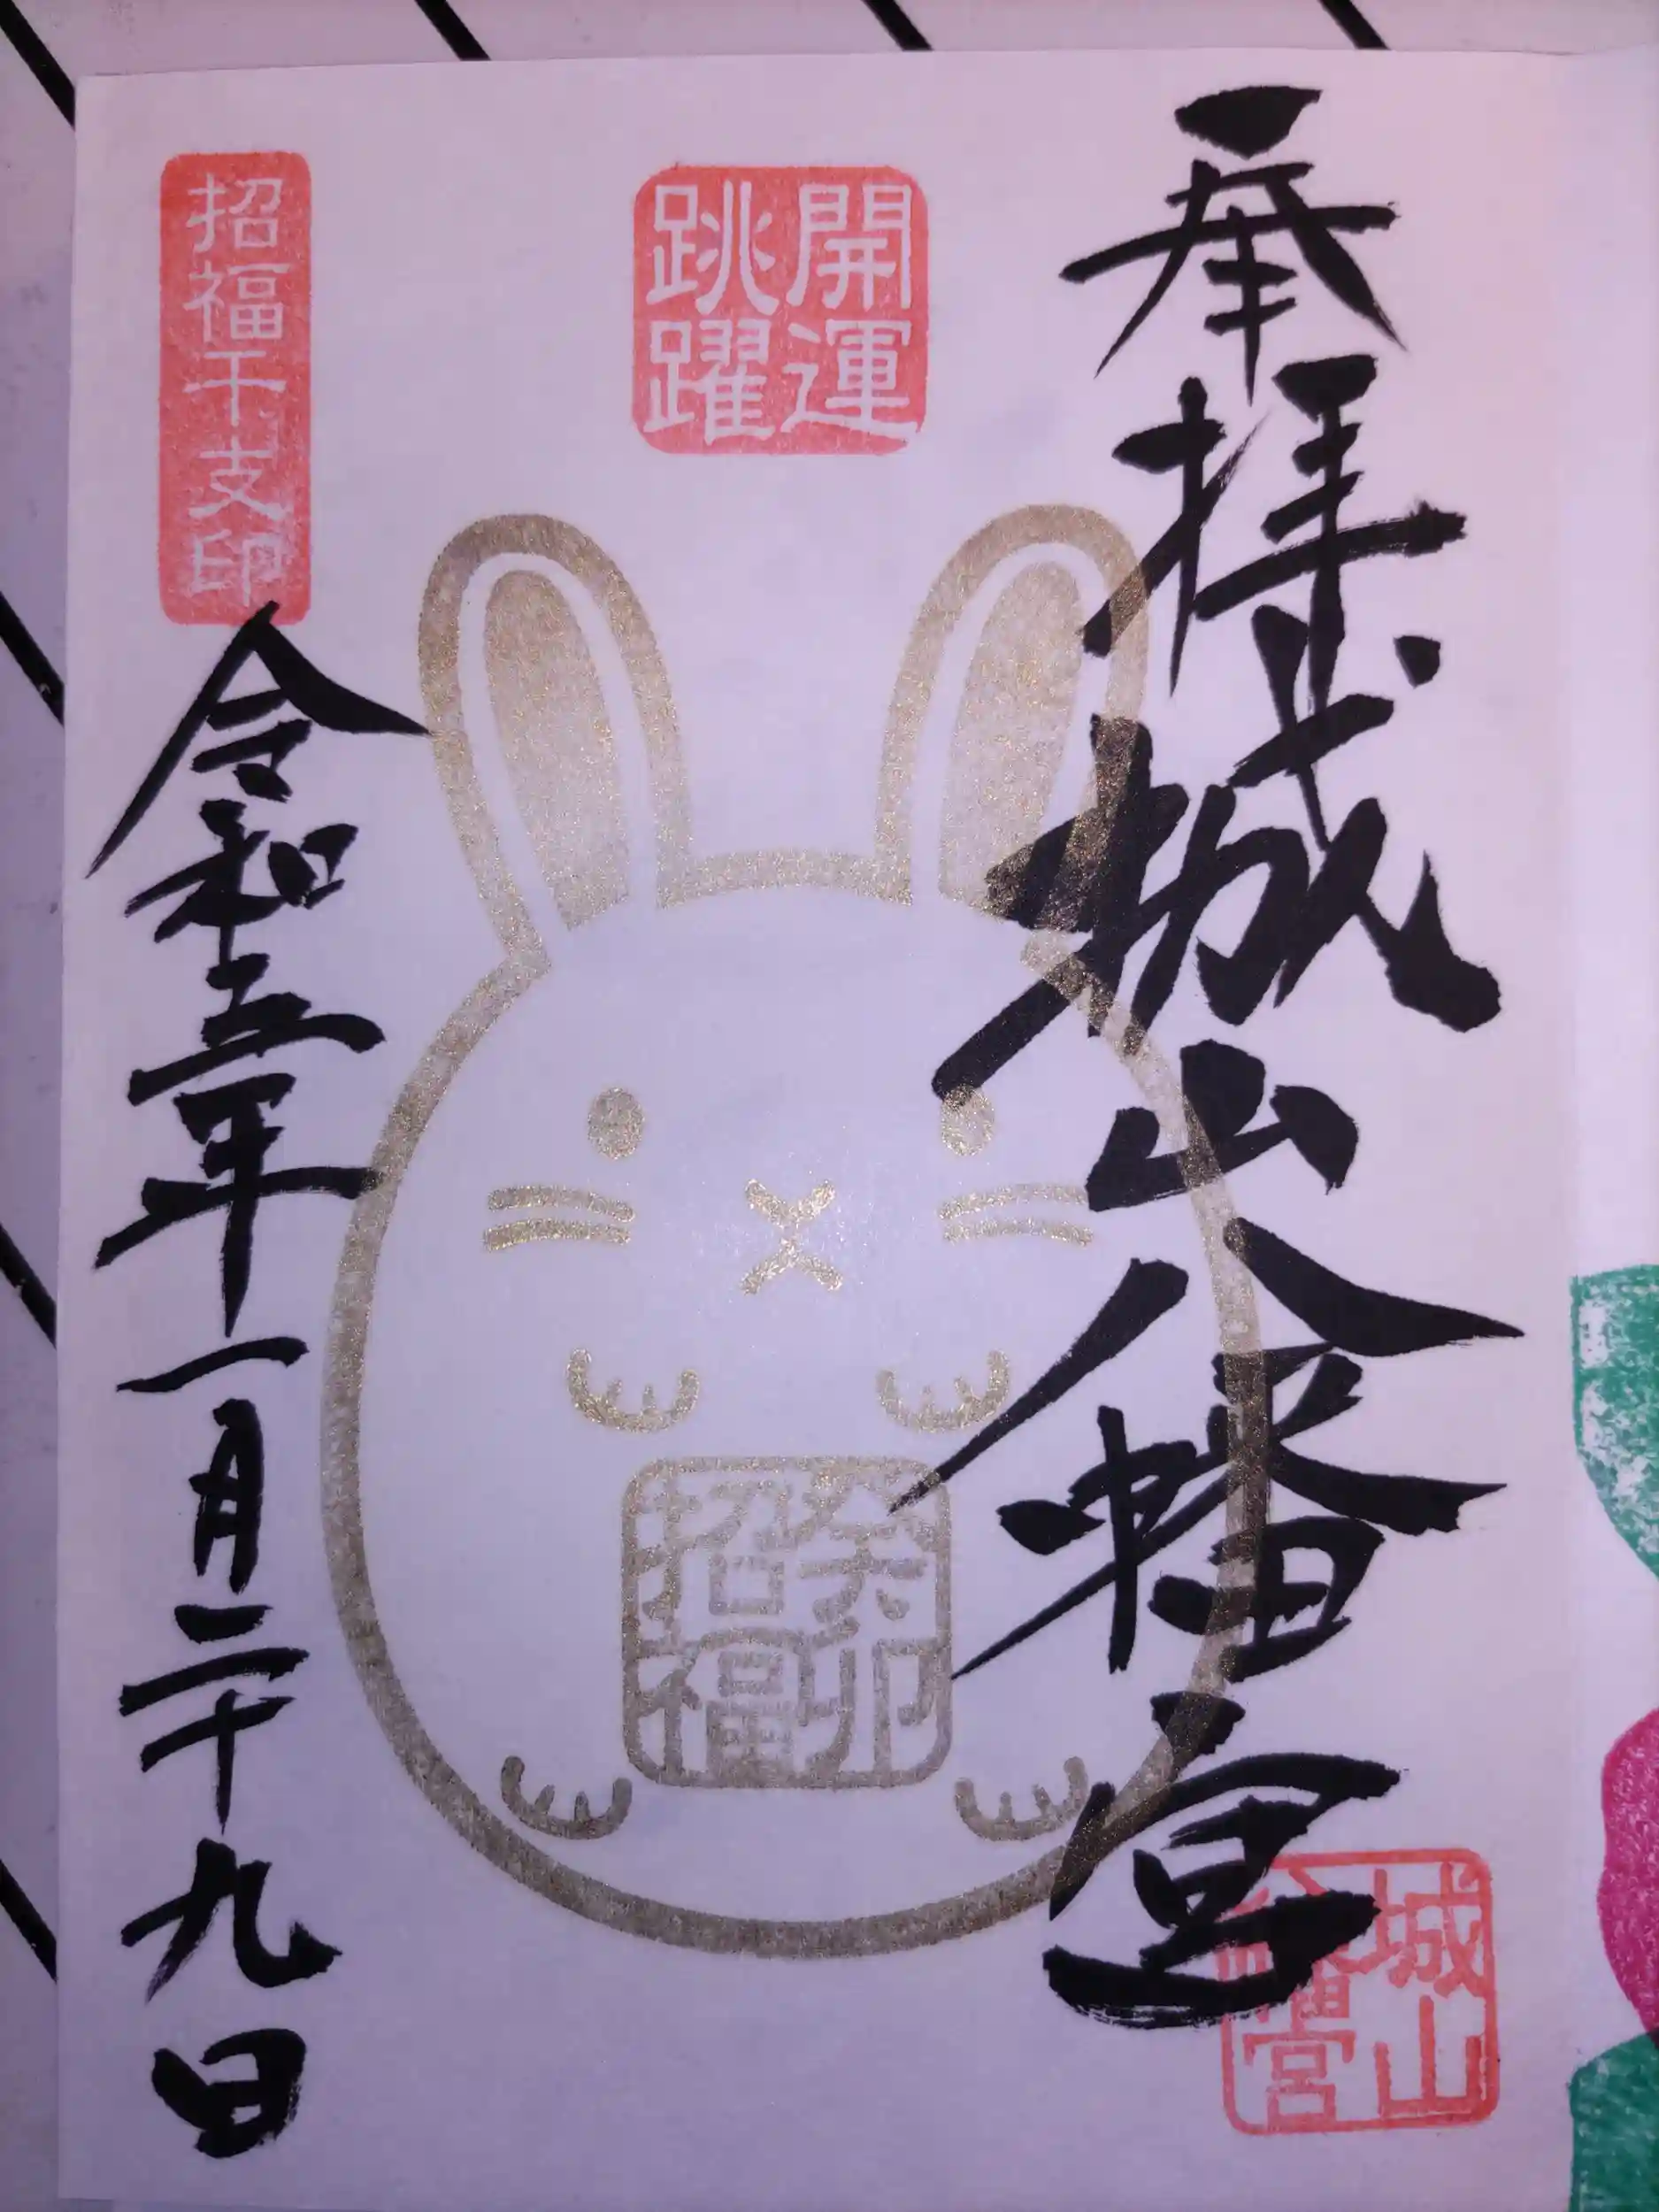 奉拝
城山八幡宮
城山八幡宮
開運
跳躍
癸卯
招福
招福干支印
令和五年一月二十九日